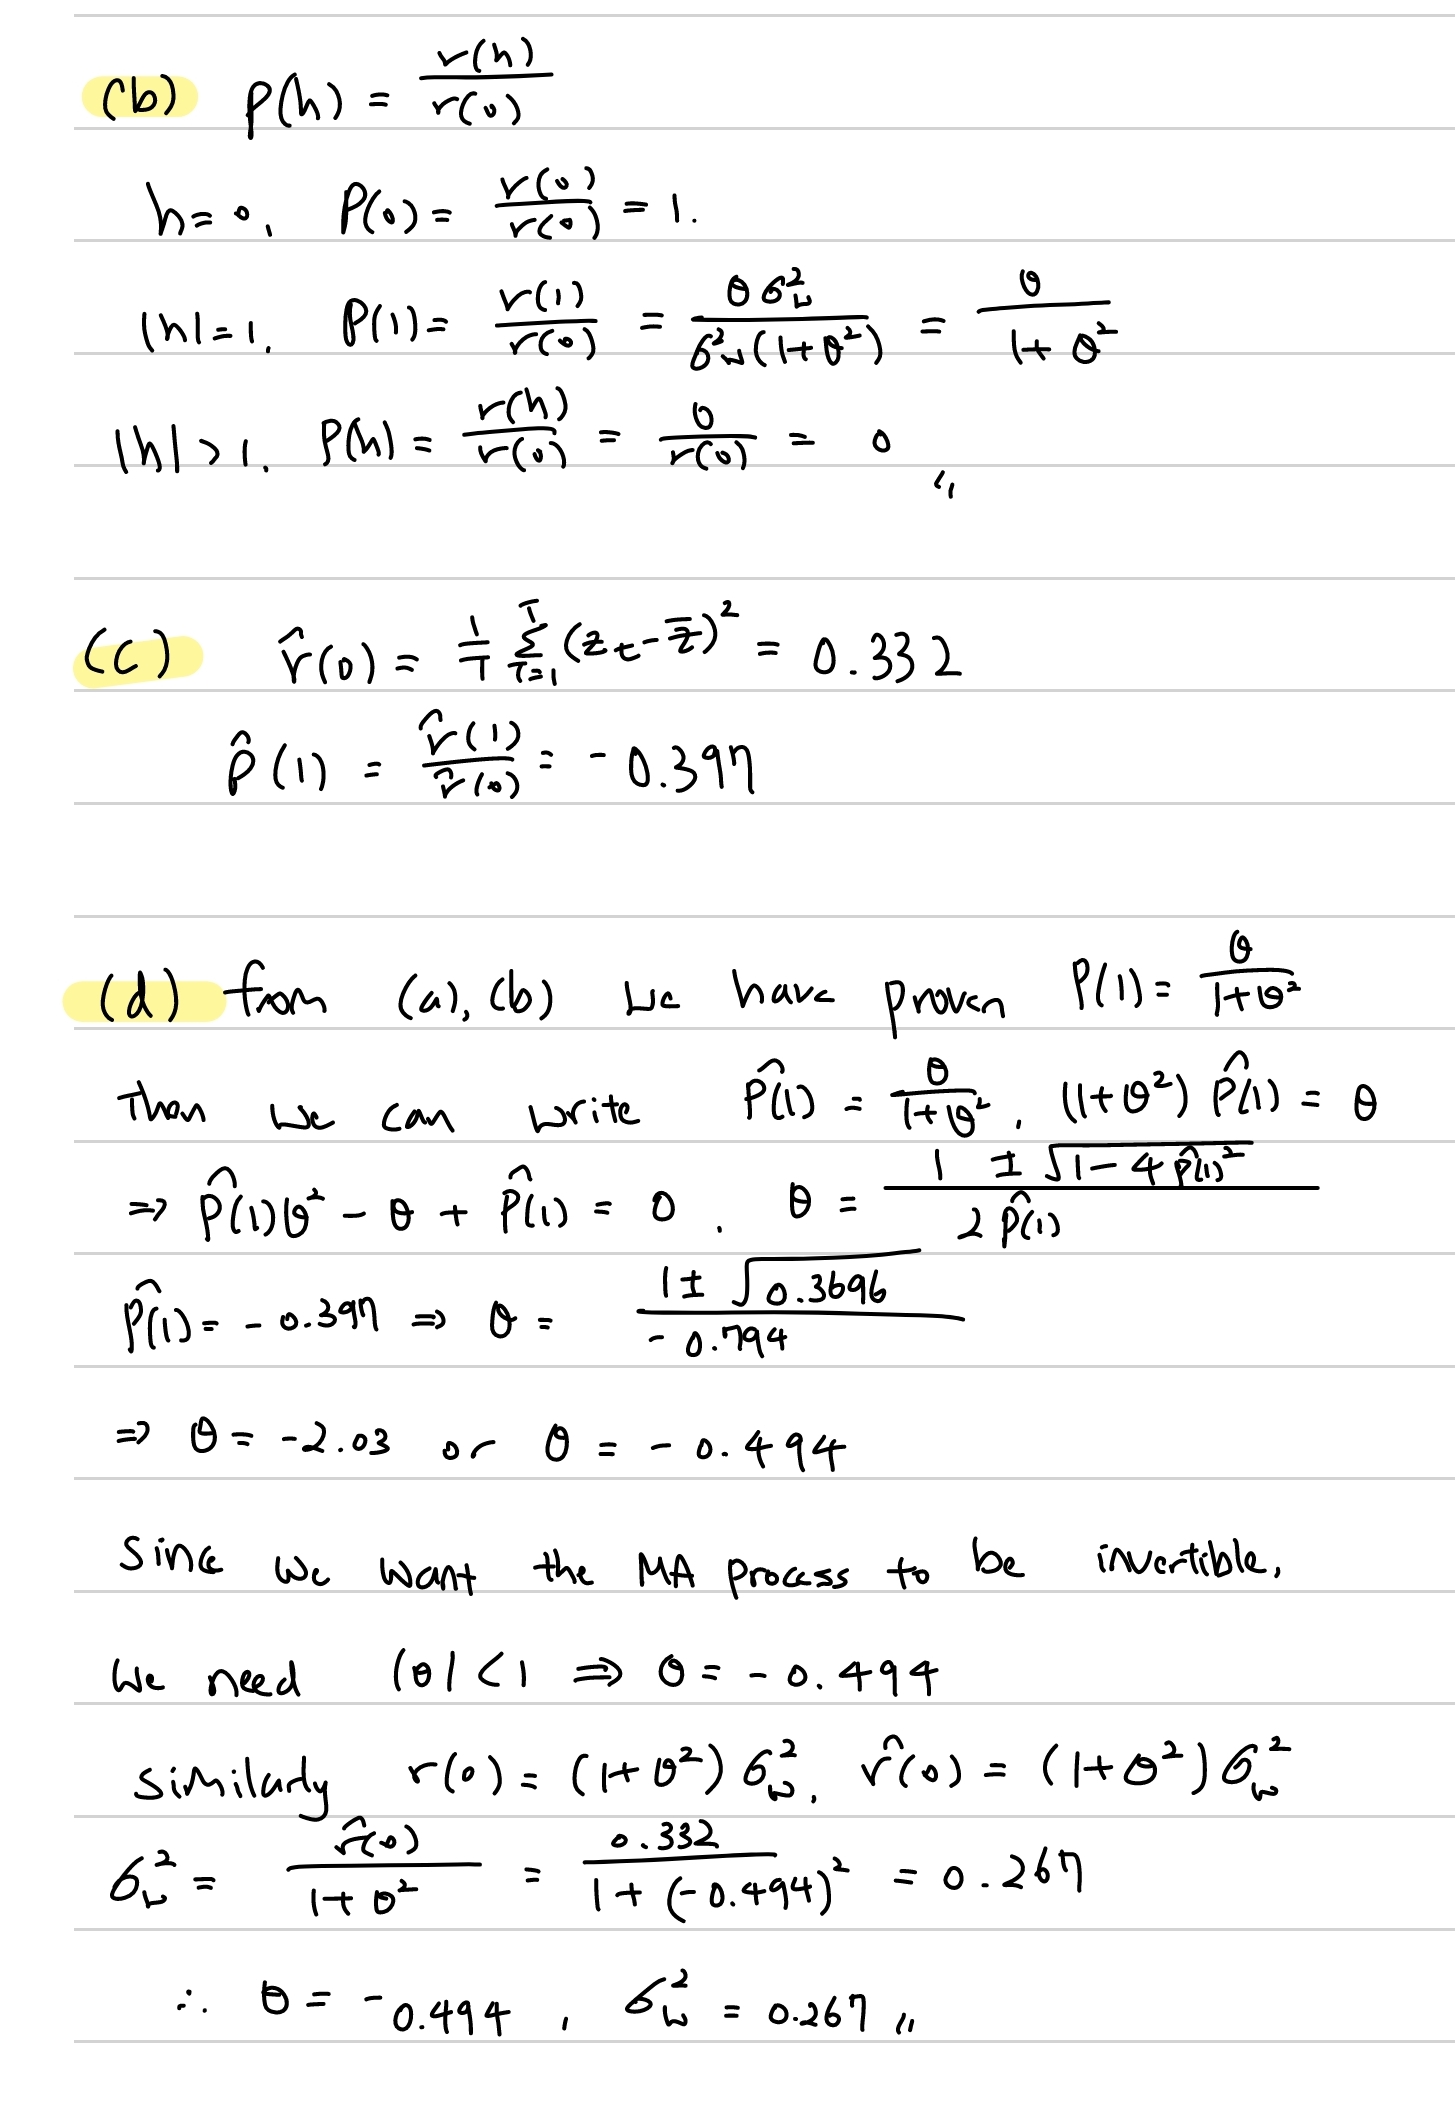 (b) ρ(h) = r(h)/r(0)
h=0, ρ(0) = r(0)/r(0) = 1.
|h|=1, ρ(1) = r(1)/r(0) = θσ²w/σ²w(1+θ²) = θ/1+θ²
|h|>1, ρ(h) = r(h)/r(0) = 0/r(0) = 0 〃
(c) r̂(0) = 1/T Σ_{T=1}^{T} (z_t - z̄)² = 0.332
ρ̂(1) = r̂(1)/r̂(0) = -0.397
(d) from (a), (b) we have proven ρ(1) = θ/1+θ²
Then we can write ρ̂(1) = θ/1+θ², (1+θ²) ρ̂(1) = θ
⇒ ρ̂(1)θ² - θ + ρ̂(1) = 0, θ = 1 ± √1-4ρ̂(1)² / 2ρ̂(1)
ρ̂(1) = -0.397 ⇒ θ = 1 ± √0.3696 / -0.794
⇒ θ = -2.03 or θ = -0.494
Since we want the MA process to be invertible,
We need |θ|<1 ⇒ θ = -0.494
Similarly r(0) = (1+θ²)σ²w, r̂(0) = (1+θ²)σ²w
σ²w = r̂(0)/1+θ² = 0.332/1+(-0.494)² = 0.267
∴ θ = -0.494, σ²w = 0.267 〃